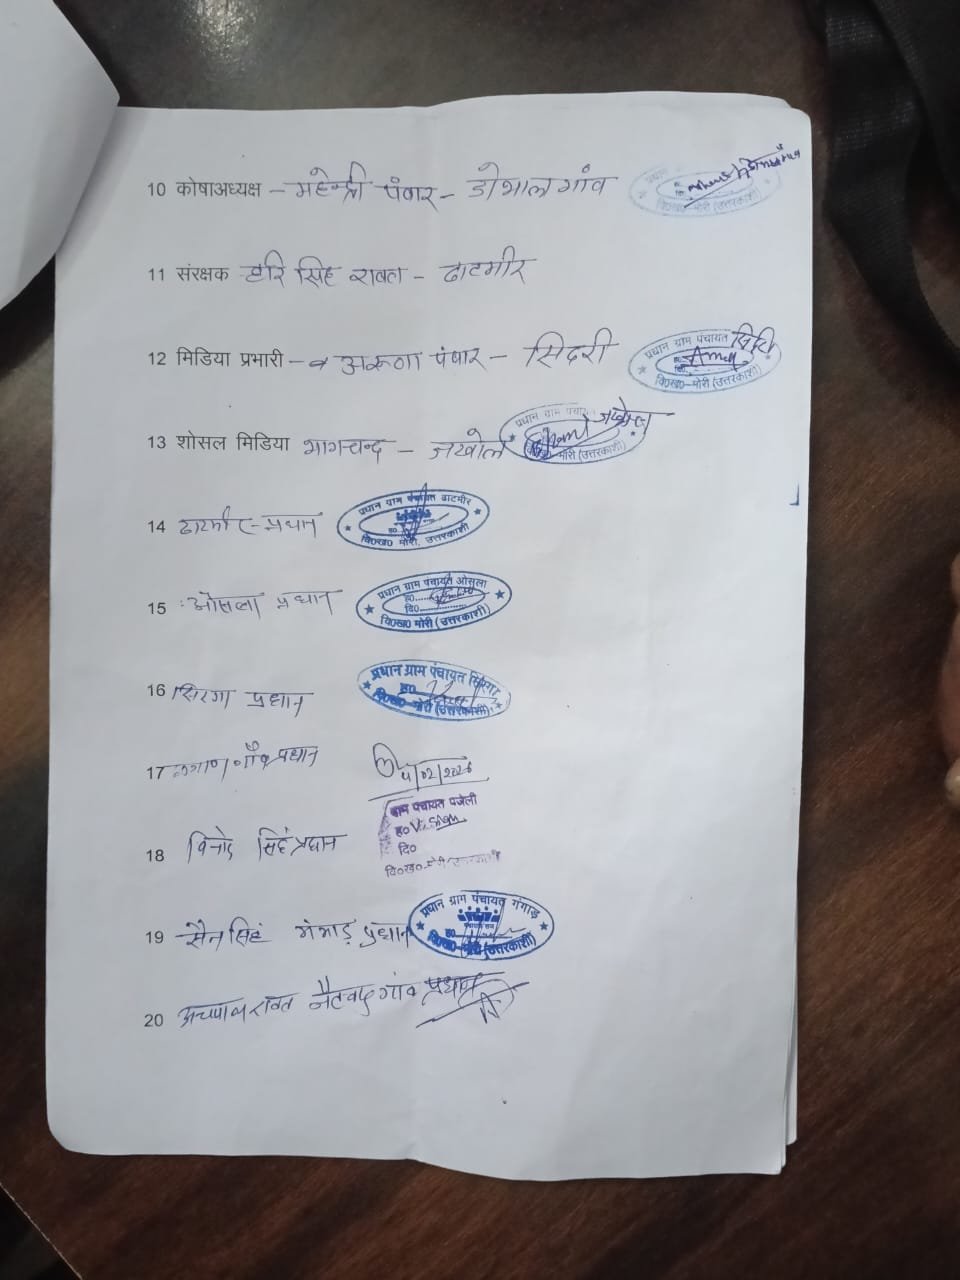 10 कोषाअध्यक्ष – महेन्द्री पंवार – डोभाल गांव
वि०ख०-मोरी (उत्तरकाशी)
11 संरक्षक हरि सिंह रावत – ढाटमीर
12 मिडिया प्रभारी – अरूणा पंवार – सिदरी
प्रधान ग्राम पंचायत
वि०ख०-मोरी (उत्तरकाशी)
13 शोसल मिडिया भागचन्द – जखोल
प्रधान ग्राम पंचा जखोल
वि०ख०-मोरी (उत्तरकाशी)
14 ढाटमीर-प्रधान
प्रधान ग्राम पंचायत ढाटमीर
ह०
वि०ख० मोरी, उत्तरकाशी
15 ओसला प्रधान
प्रधान ग्राम पंचायत ओसुला
ह०
दि०
वि०ख० मोरी (उत्तरकाशी)
16 सिरगा प्रधान
प्रधान ग्राम पंचायत सिरगा
ह०
वि०ख०-मोरी (उत्तरकाशी)
17 गाँव प्रधान
/02/2026
18 विनोद सिंह प्रधान
ग्राम पंचायत पजेली
ह०
दि०
वि०ख०-मोरी (उत्तरकाशी)
19 सैन सिंह गंगाड़ प्रधान
प्रधान ग्राम पंचायत गंगाड़
ह०
वि०ख०-मोरी (उत्तरकाशी)
20 रावत नैटवाड़ गांव प्रधान